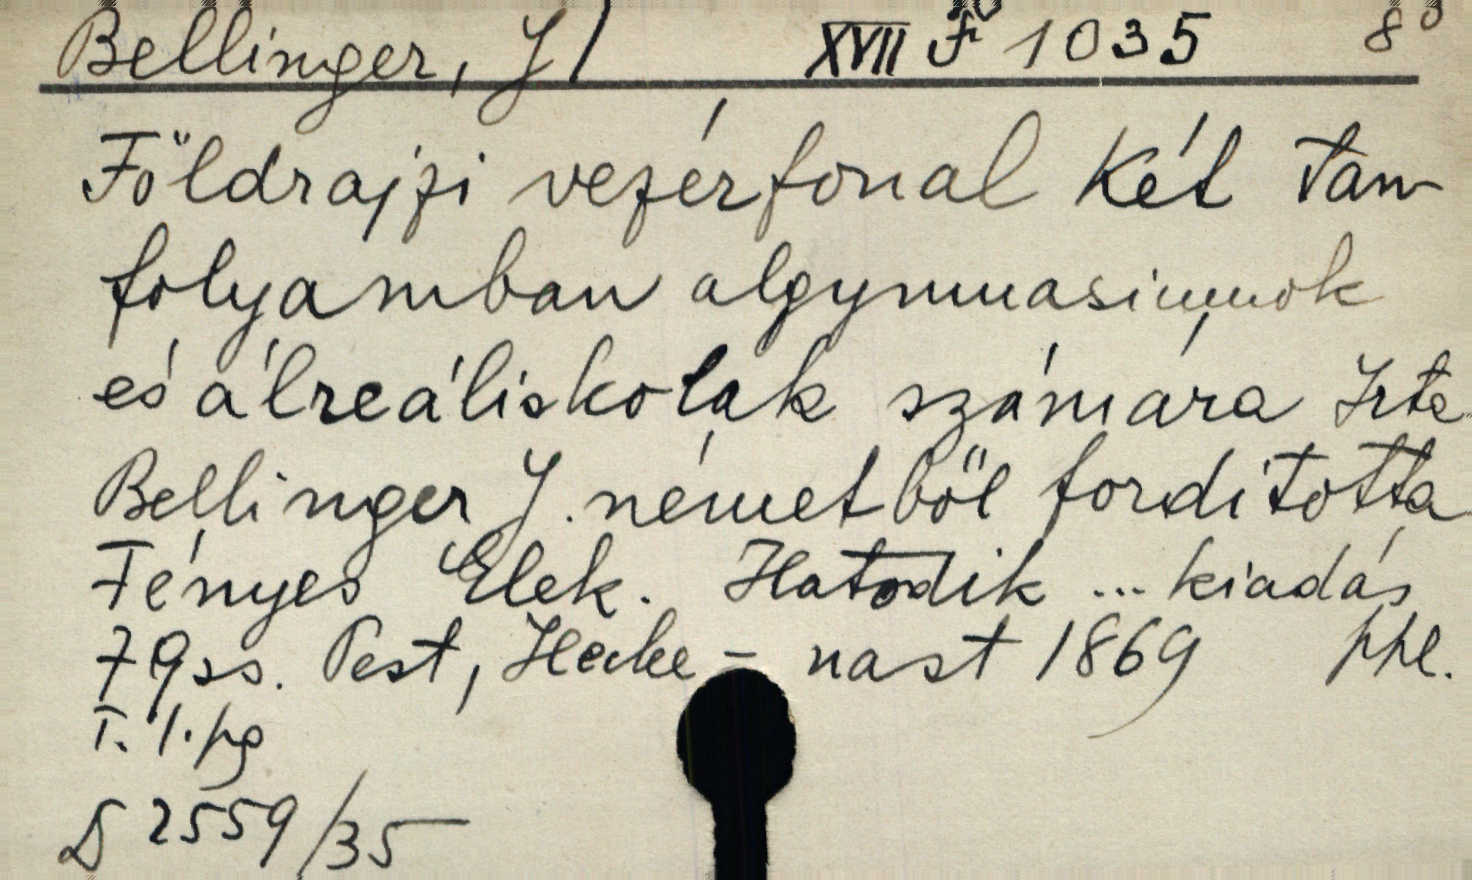 Bellinger, J/ XVII F 1035 8°
Földrajzi vezérfonal két tan-
folyamban algymnasiumok
és álreáliskolák számára Irta
Bellinger J. németből fordította
Fényes Elek. Hatodik ... kiadás
79 ss. Pest, Hecke-nast 1869 ppl.
T. 1. pg
D 2559/35